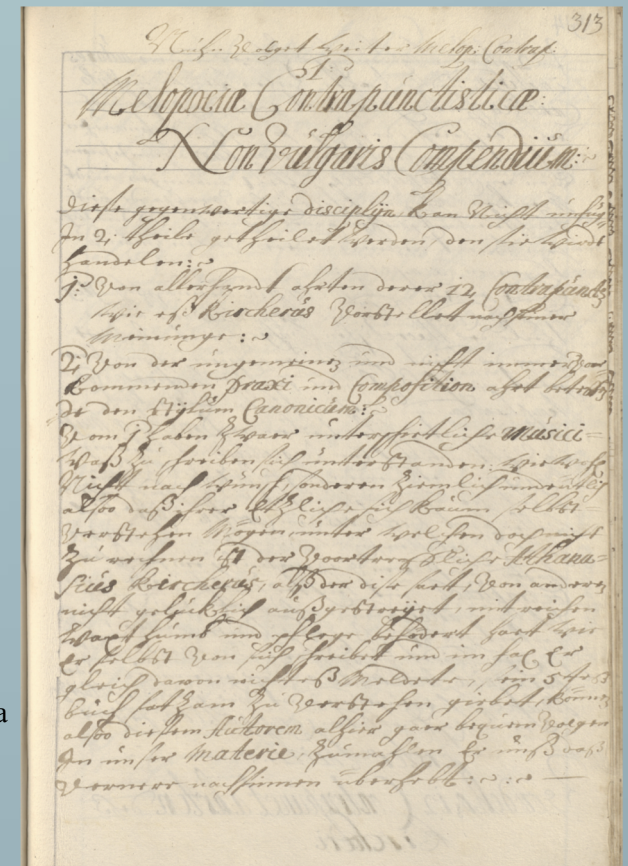 313
Nuhn Volget weiter Melop: Contrap:
Melopoeiæ Contrapunctisticæ:
Non Vulgaris Compendium:
Diese gegenwertige disciplyn kan Nicht
In 2; theile getheilet werden, den sie wird
handelen:
1; Von allerhandt ahrten derer 12 Contrapunct
wie eß Kircherus Vorstellet nach seiner
Meinunge:
2; Von der ungemeinen und nicht immer Vor
kommenden praxi und Composition ahrt
de den Stylum Canonicum:
Vom 1 haben Zwaer unterschietliche Musici
waß Zu schreiben sich unterstanden, wiewohl
Nicht nach wunsch, sonderen Ziemlich undeutlich
alsoo daß ihrer etzliche sich kaum selbst
Verstehen Mögen, unter welchen doch nicht
Zu rechnen ist der Voortreffliche Athana=
sius Kircherus, alß der dise saet, Von anderen
nicht gelücklich außgestreuet, mit reichen
waxthumb und pflege befodert haet wie
Er selbst Von sich schreibet und im fal Er
gleich davon nichteß Meldete, sein 5 teß
buch satzam Zu Verstehen giebet, können
alsoo diesem Autoren alhier gaer bequem Volgen
In unser Materie, Zumahlen Er unß
Vernere nachsinnen überhebt:
a